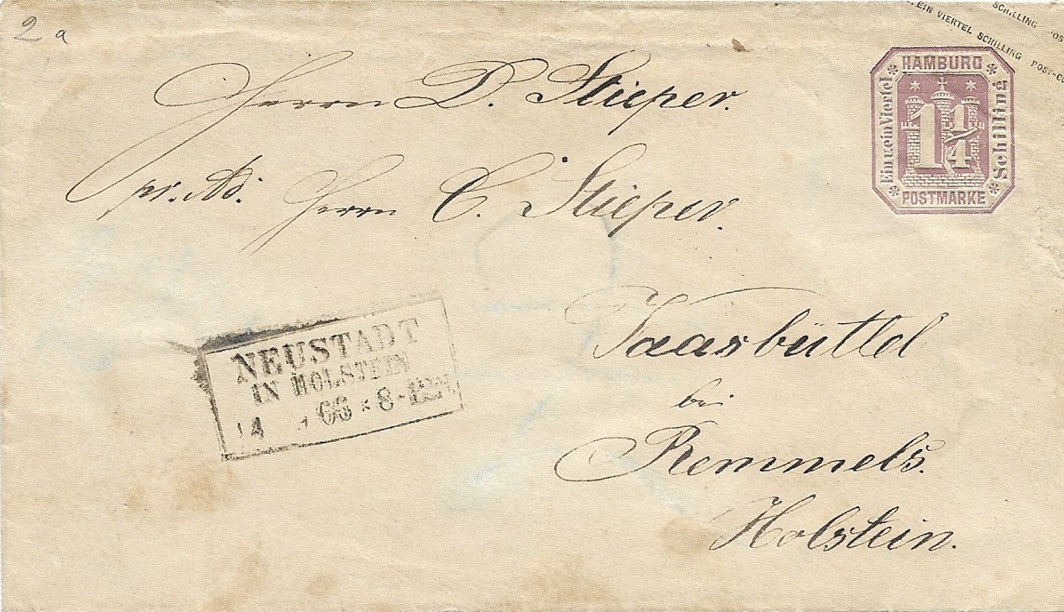 2 a
SCHILLING POS
EIN VIERTEL SCHILLING POST-CO
HAMBURG
Ein u. ein Viertel
1 1/4
Schilling
POSTMARKE
Herrn D. Stieper.
pr. Ad. Herrn C. Stieper.
Vaasbüttel
bei
Remmels.
Holstein.
NEUSTADT
IN HOLSTEIN
14 66 * 8-